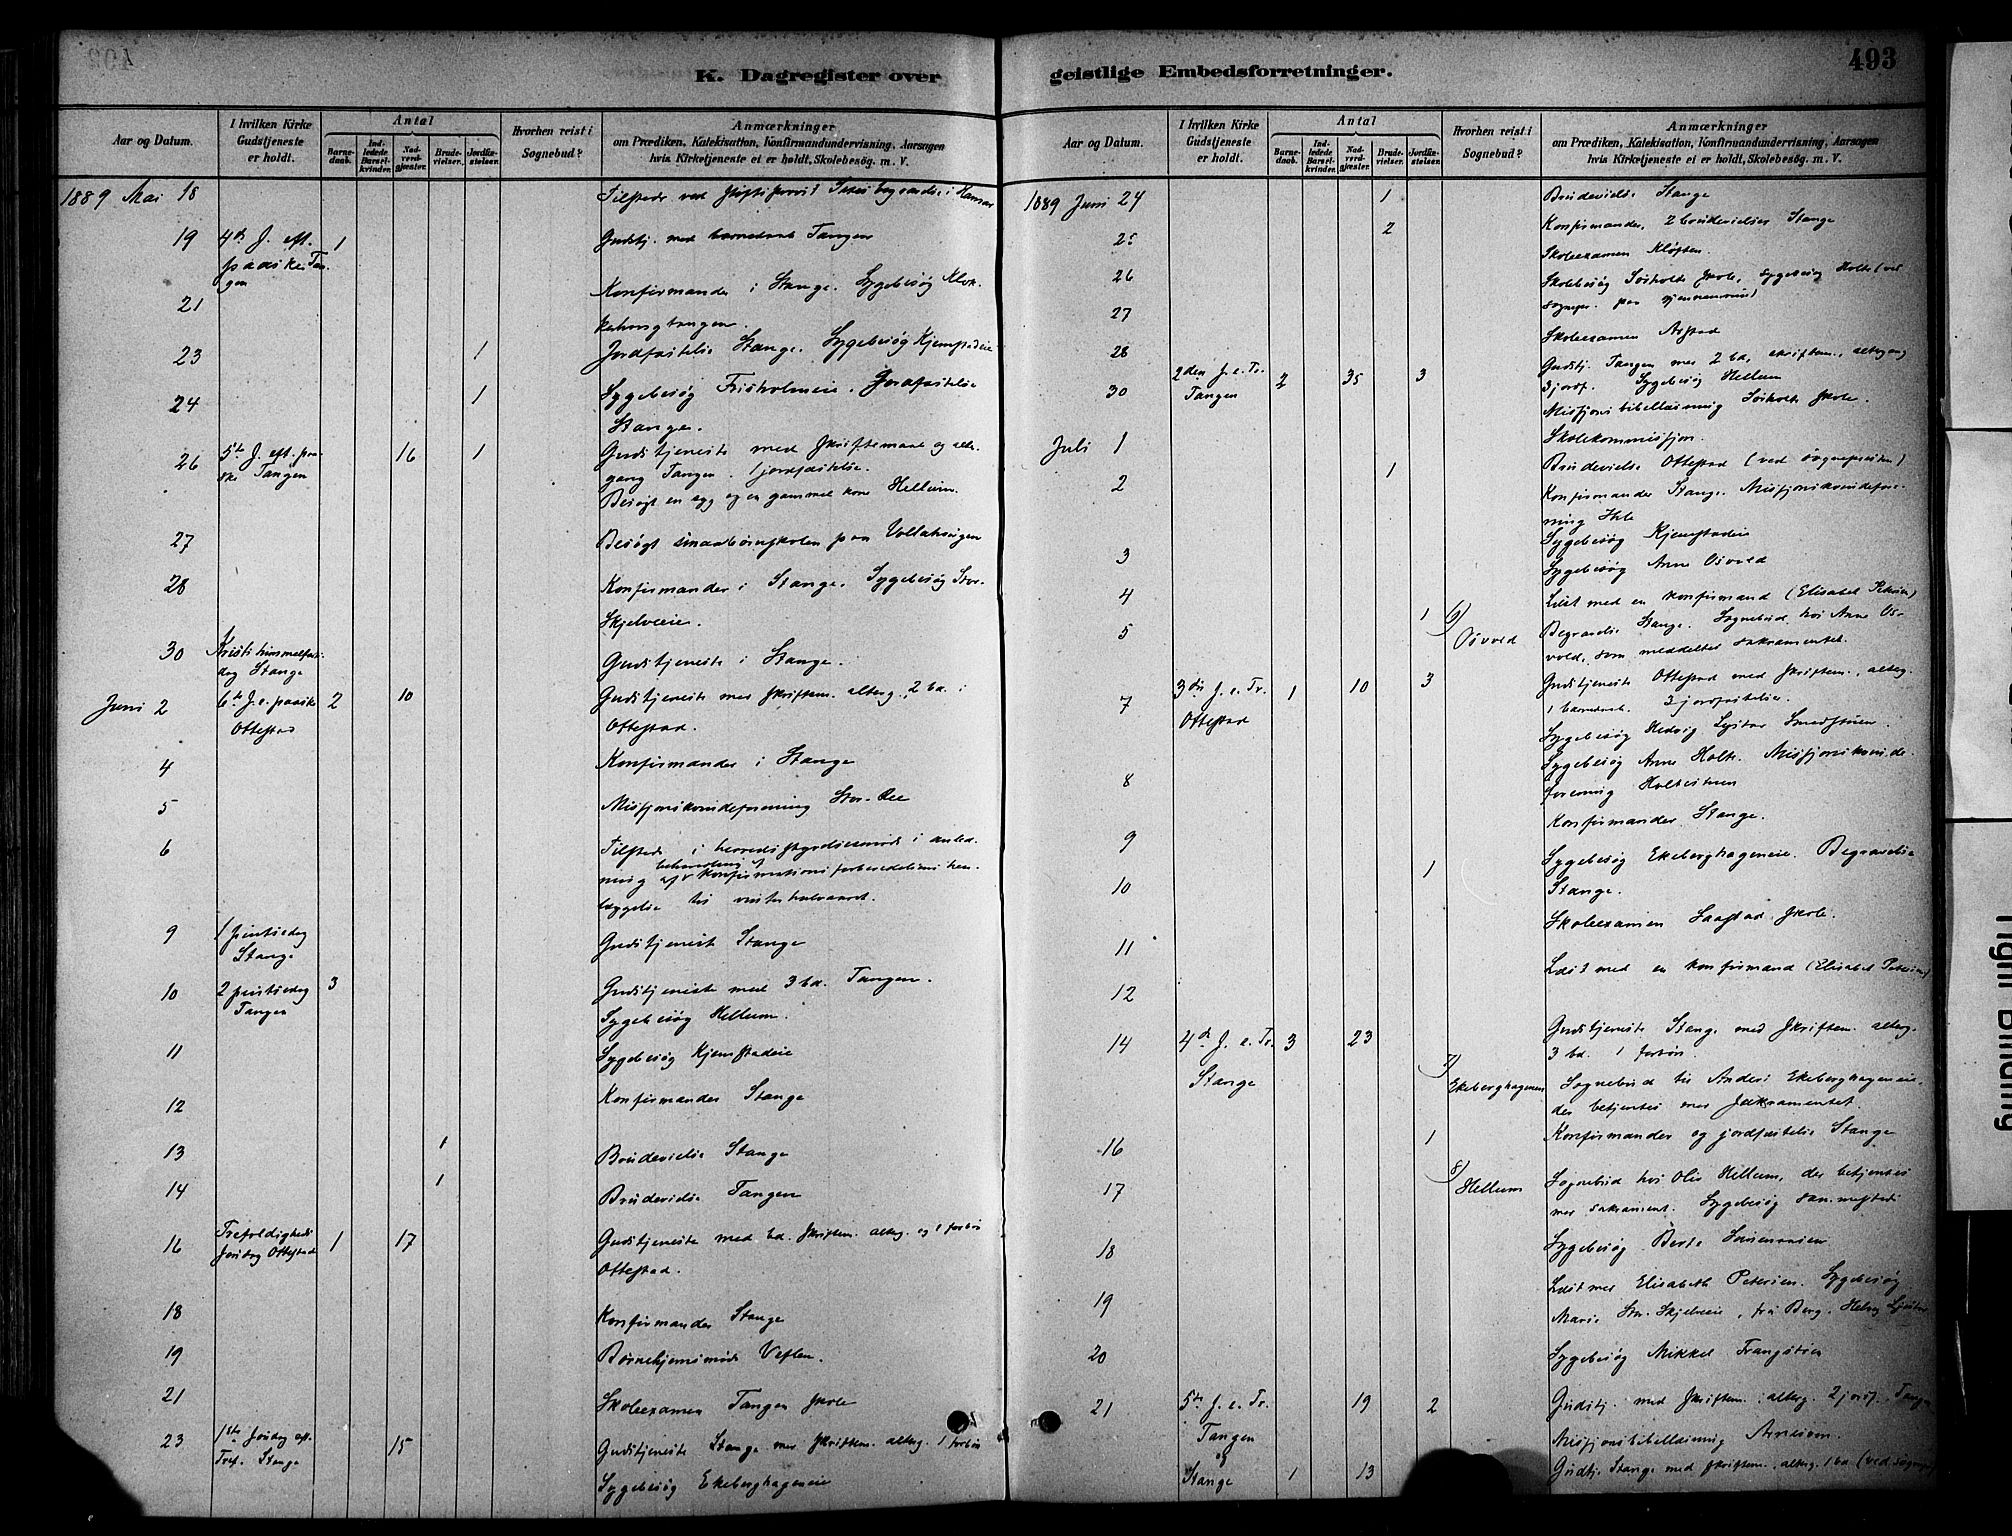 K. Dagregister over
geistlige Embedsforretninger.
493
Aar og Datum.
I hvilken Kirke Gudstjeneste er holdt.
Antal
Barnedaab.
Indledede Barselkvinder.
Nadverdgjester.
Brudevielser.
Jordfæstelser.
Hvorhen reist i Sognebud?
Anmærkninger
om Prædiken, Katekisation, Konfirmandundervisning, Aarsagen
hvis Kirketjeneste ei er holdt, Skolebesøg. m. V.
1889 Mai 18 Tilstede ved Stiftsprovst begravelse i Hamar
19 4de S. eft. paaske Tangen 1 Gudstj. med barnedaab Tangen
21 Konfirmander i Stange. Sygebesøg
23 1 Jordfæstelse Stange. Sygebesøg Kjemstadeie
24 1 Sygebesøg Frisholmeie. Jordfæstelse
Stange.
26 5te S. eft. paaske Tangen 16 1 Gudstjeneste med Skriftemaal og altergang
Tangen. 1 jordfæstelse.
Besøgt en syg og en gammel kone Hellum.
27 Besøgt smaabørnskolen paa
28 Konfirmander i Stange. Sygebesøg Stor-
Skjelveie.
30 Kristi himmelfartsdag Stange Gudstjeneste i Stange.
Juni 2 6te S. e. paaske Ottestad 2 10 Gudstjeneste med skriftem. alterg. 2 bd. i
Ottestad.
4 Konfirmander i Stange
5 Missjonskvindeforening Stor-Ree
6 Tilstede i herredsstyrelsesmøde i anled-
ning af behandling af konfirmationsforberedelsens hen-
læggelse til vinterhalvaaret.
9 1 pintsedag Stange Gudstjeneste Stange
10 2 pintsedag Tangen 3 Gudstjeneste med 3 bd. Tangen.
Sygebesøg Hellum.
11 Sygebesøg Kjemstadeie
12 Konfirmander Stange
13 1 Brudevielse Stange
14 1 Brudevielse Tangen
16 Trefoldigheds søndag Ottestad 1 17 Gudstjeneste med bd. skriftem. alterg. og 1 forbøn
Ottestad.
18 Konfirmander Stange
19 Børnehjemsmøde Veflen.
21 Skoleexamen Tangen skole
23 1ste søndag eft. Tref. Stange 15 Gudstjeneste Stange med skriftem. alterg. 1 forbøn
Sygebesøg Ekeberghageneie
Aar og Datum.
I hvilken Kirke Gudstjeneste er holdt.
Antal
Barnedaab.
Indledede Barselkvinder.
Nadverdgjester.
Brudevielser.
Jordfæstelser.
Hvorhen reist i Sognebud?
Anmærkninger
om Prædiken, Katekisation, Konfirmandundervisning, Aarsagen
hvis Kirketjeneste ei er holdt, Skolebesøg. m. V.
1889 Juni 24 1 Brudevielse Stange
25 2 Konfirmander, 2 brudevielser Stange
Skoleexamen Kløften
26 Skolebesøg Sørholte skole, sygebesøg Holte (ved
sognepr. paa gjennemreise)
27
28 Skoleexamen Arstad
30 2den S. e. Tr. Tangen 2 35 3 Gudstj. Tangen med 2 bd, skriftem., altergang
3 jordf. Sygebesøg Hellum
Missjonsbibellæsning Sørholte skole.
Juli 1 Skolekommissjon.
2 1 Brudevielse Ottestad (ved sognepresten)
Konfirmander Stange. Missjonskvindefore-
ning
3 Sygebesøg Kjemstadeie
Sygebesøg Anne Osvold
4 Læst med en konfirmand (Elisabet Petersen)
5 1 6) Osvold Begravelse Stange. Sognebud hos Anne Os-
vold, som meddeltes sakramentet.
7 3die S. e. Tr. Ottestad 1 10 3 Gudstjeneste Ottestad med skriftem., alterg.
1 barnedaab. 3 jordfæstelse.
Sygebesøg Hedvig Smedstuen.
8 Sygebesøg Anne Holte. Missjonskvinde-
forening Holtestuen
9 Konfirmander Stange.
10 1 Sygebesøg Ekeberghageneie. Begravelse
Stange.
11 Skoleexamen Saastad skole.
12 Læst med en konfirmand (Elisabet Petersen)
14 4de S. e. Tr. Stange 3 23 7) Ekeberghagenen Gudstjeneste Stange med skriftem. alterg.
3 bd. 1 forbøn.
Sognebud til Anders Ekeberghageneie,
der betjentes med sakramentet.
16 1 Konfirmander og jordfæstelse Stange
17 8) Hellum Sognebud hos Oliv Hellum, der betjentes
med sakrament. Sygebesøg sammesteds
18 Sygebesøg Berte
19 Læst med Elisabeth Petersen. Sygebesøg
Marie Stor Skjelveie, fru Berg,
20 Sygebesøg Mikkel
21 5te S. e. Tr. Tangen 19 2 Gudstj. med skriftem., alterg. 2 jordf. Tangen
Missjonsbibellæsning
og Stange 1 13 Gudtj. Stange med skriftem., alterg. 1 bd (ved sognepr)